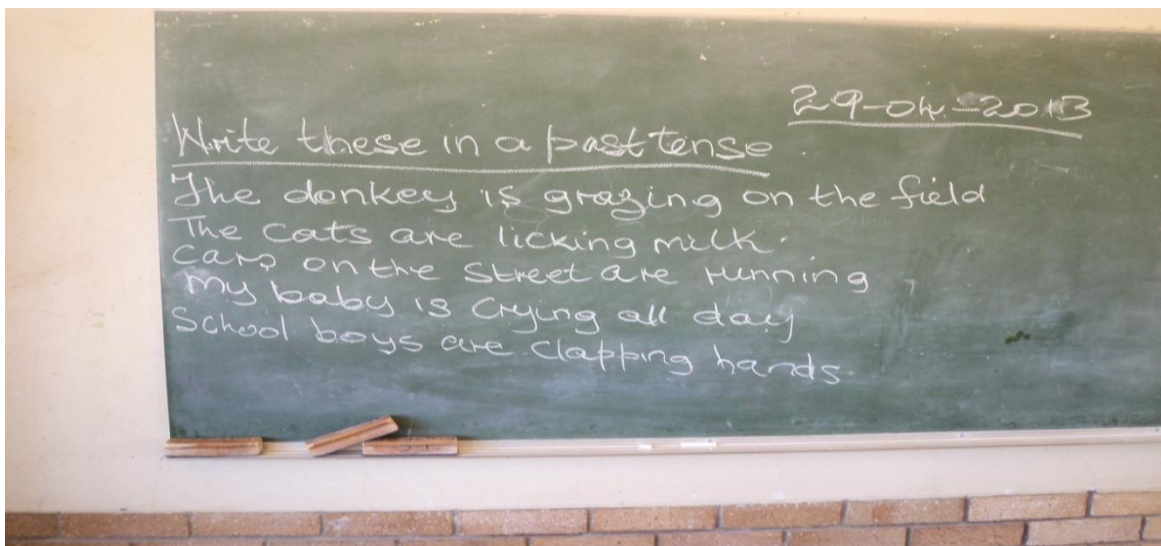 29-04-2013
Write these in a past tense
The donkey is grazing on the field
The cats are licking milk.
Cars on the Street are running
My baby is Crying all day
School boys are Clapping hands.